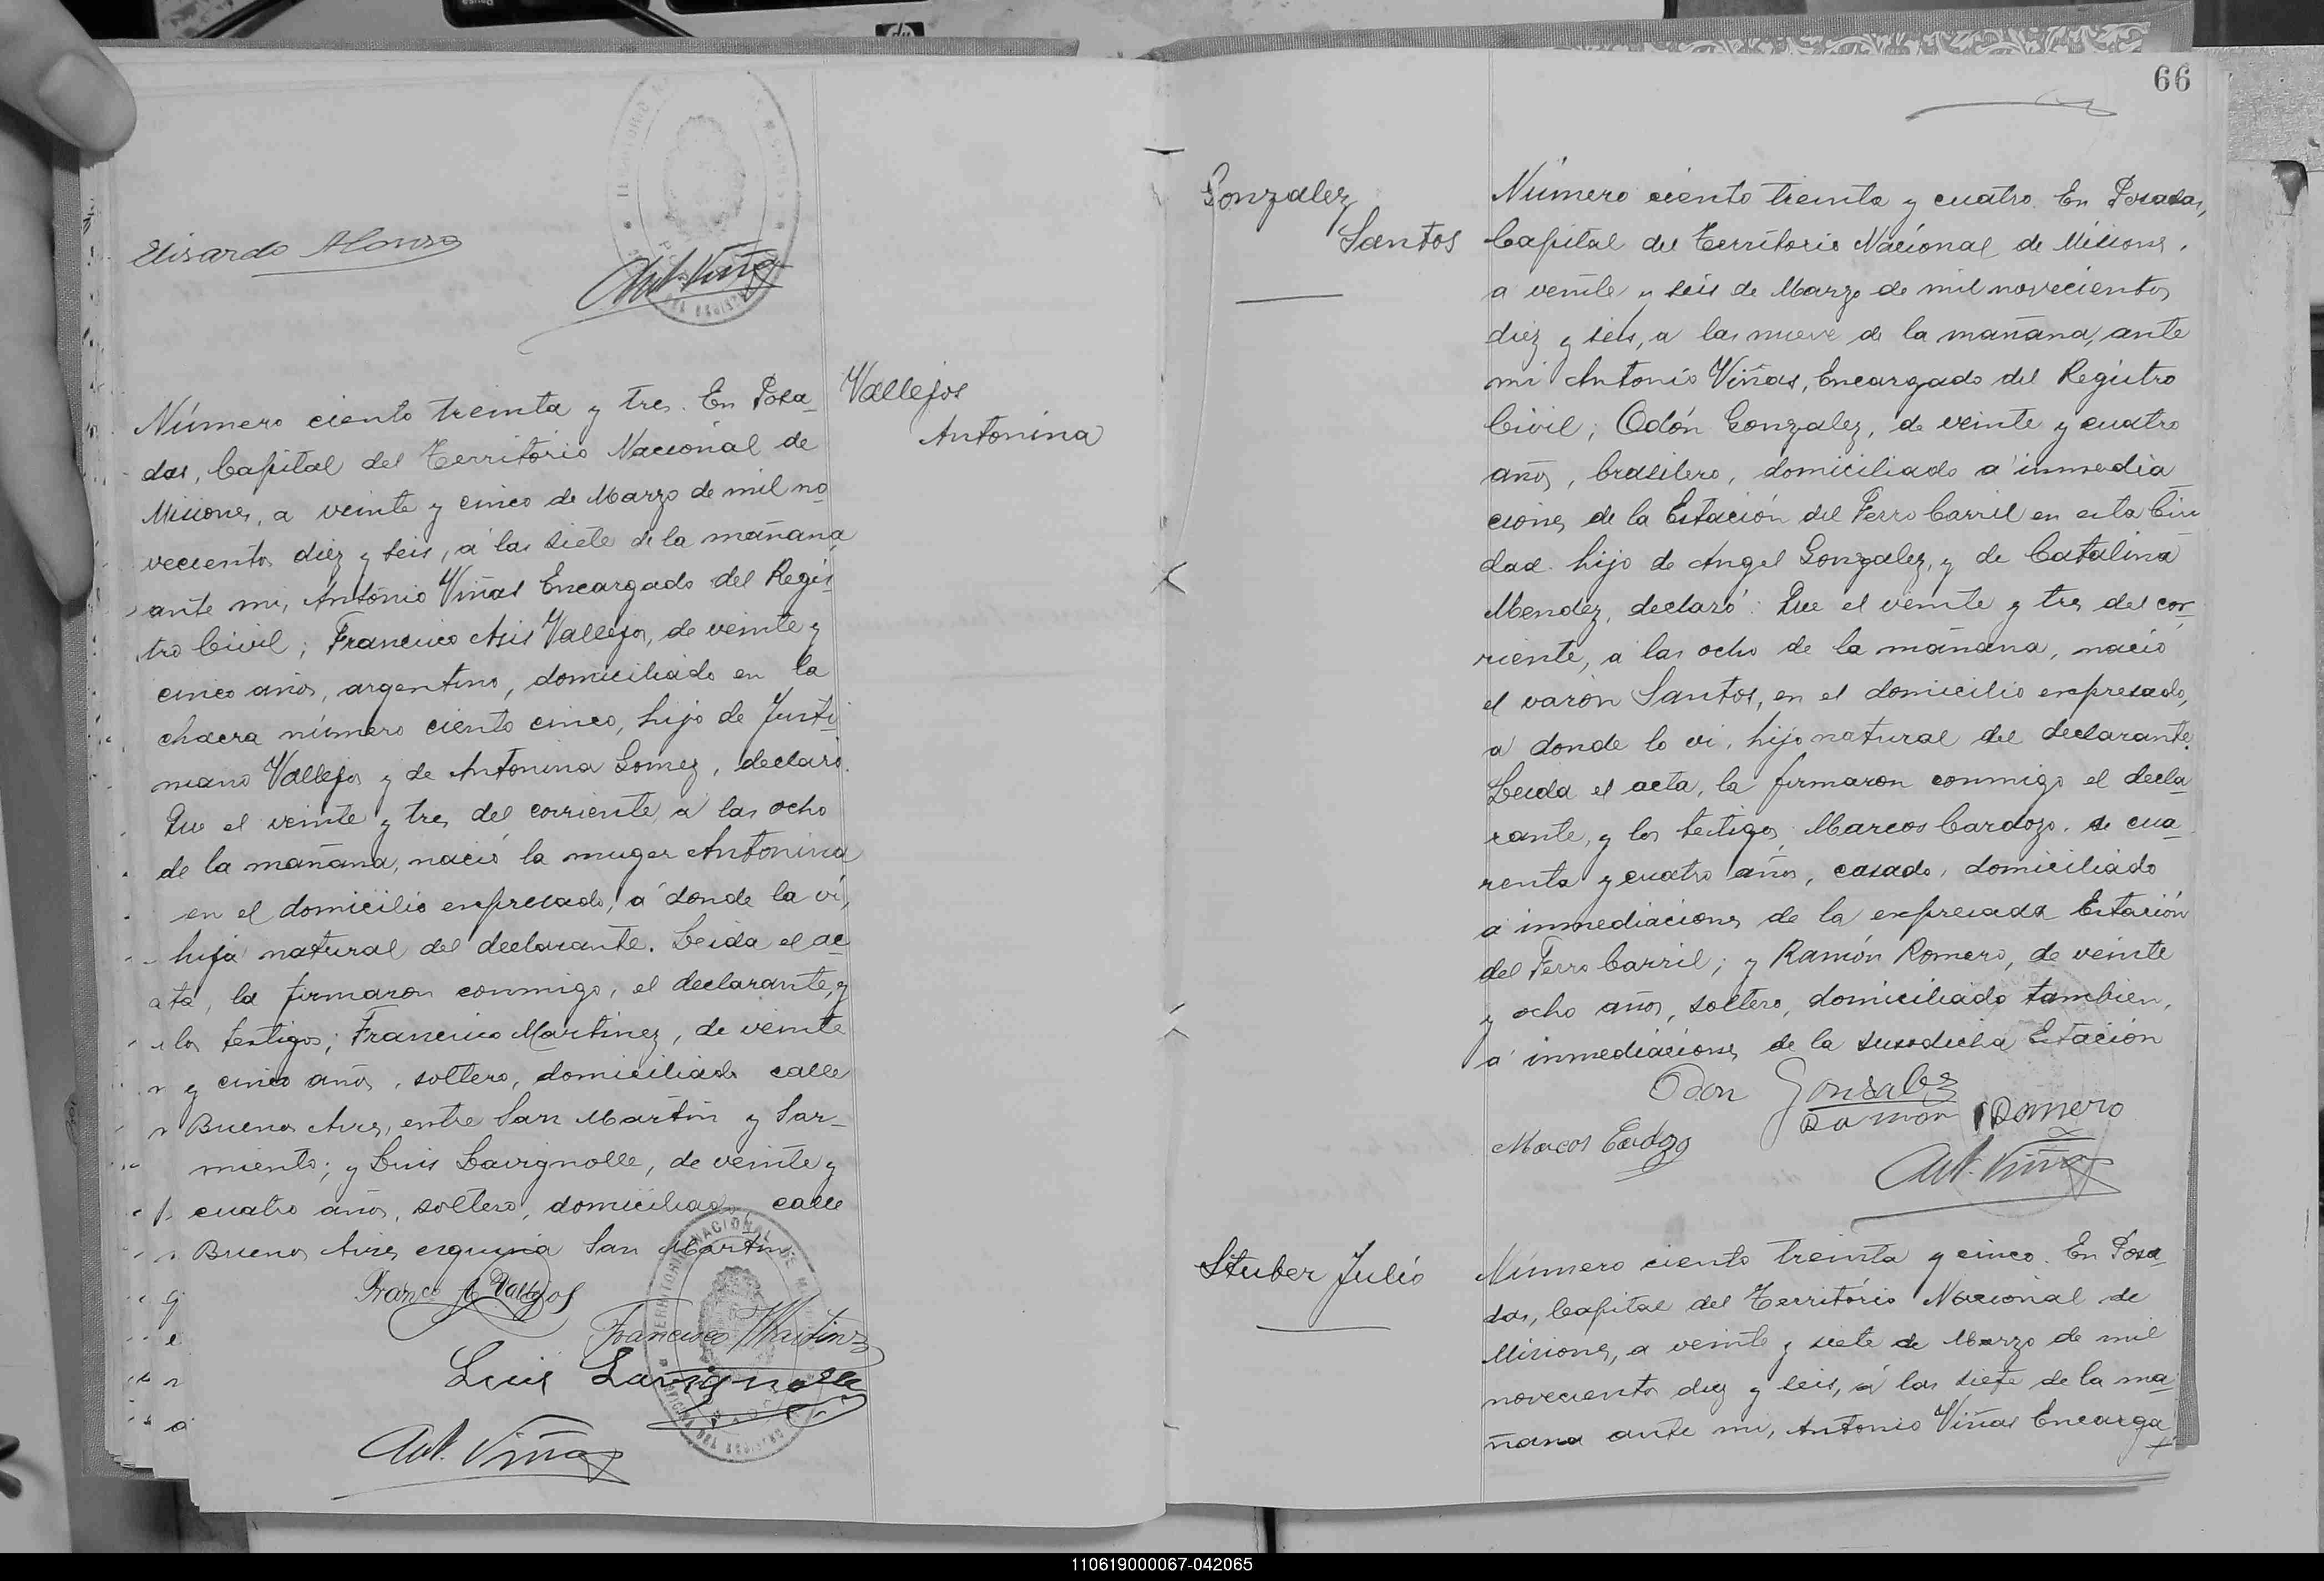 Elisardo Alonso
Ant. Viñas
Vallejos
Antonina
Número ciento treinta y tres. En Posa-
das, Capital del Territorio Nacional de
Misiones, a veinte y cinco de Marzo de mil no-
vecientos diez y seis, á las siete de la mañana
ante mi, Antonio Viñas Encargado del Regis-
tro Civil; Francisco Asis Vallejos, de veinte y
cinco años, argentino, domiciliado en la
chacra número ciento cinco, hijo de Justi-
niano Vallejos y de Antonina Gomez, declaró.
Que el veinte y tres del corriente á las ocho
de la mañana, nació la muger Antonina
en el domicilio expresado, á donde la vi,
hija natural del declarante. Leida el ac-
ta, la firmaron conmigo, el declarante, y
los testigos; Francisco Martinez, de veinte
y cinco años, soltero, domiciliado calle
Buenos Aires, entre San Martin y Sar-
miento; y Luis Lavignolle, de veinte y
cuatro años, soltero, domiciliado, calle
Buenos Aires esquina San Martin
Franco A Vallejos
Francisco Martinez
Luis Lavignolle
Ant. Viñas
66
Gonzalez
Santos
Número ciento treinta y cuatro. En Posadas,
Capital del Territorio Nacional de Misiones,
a veinte y seis de Marzo de mil novecientos
diez y seis, a las nueve de la mañana, ante
mi Antonio Viñas, Encargado del Registro
Civil; Odón Gonzalez, de veinte y cuatro
años, brasilero, domiciliado a inmedia-
ciones de la Estación del Ferro Carril en esta Ciu-
dad. hijo de Angel Gonzalez, y de Catalina
Mendez, declaró: Que el veinte y tres del cor-
riente, a las ocho de la mañana, nació
el varón Santos, en el domicilio expresado,
a donde lo vi, hijo natural del declarante.
Leida el acta, la firmaron conmigo el decla-
rante, y los testigos, Marcos Cardozo, de cua-
renta y cuatro años, casado, domiciliado
a inmediaciones de la expresada Estación
del Ferro Carril; y Ramón Romero, de veinte
y ocho años, soltero, domiciliado tambien,
a inmediaciones de la susodicha Estación
Odon Gonsalez
Ramon Romero
Marcos Cardozo
Ant. Viñas
Stuber Julio
Número ciento treinta y cinco. En Posa-
das, Capital del Territorio Nacional de
Misiones, a veinte y siete de Marzo de mil
novecientos diez y seis, á las siete de la ma-
ñana ante mi, Antonio Viñas Encarga-
110619000067-042065